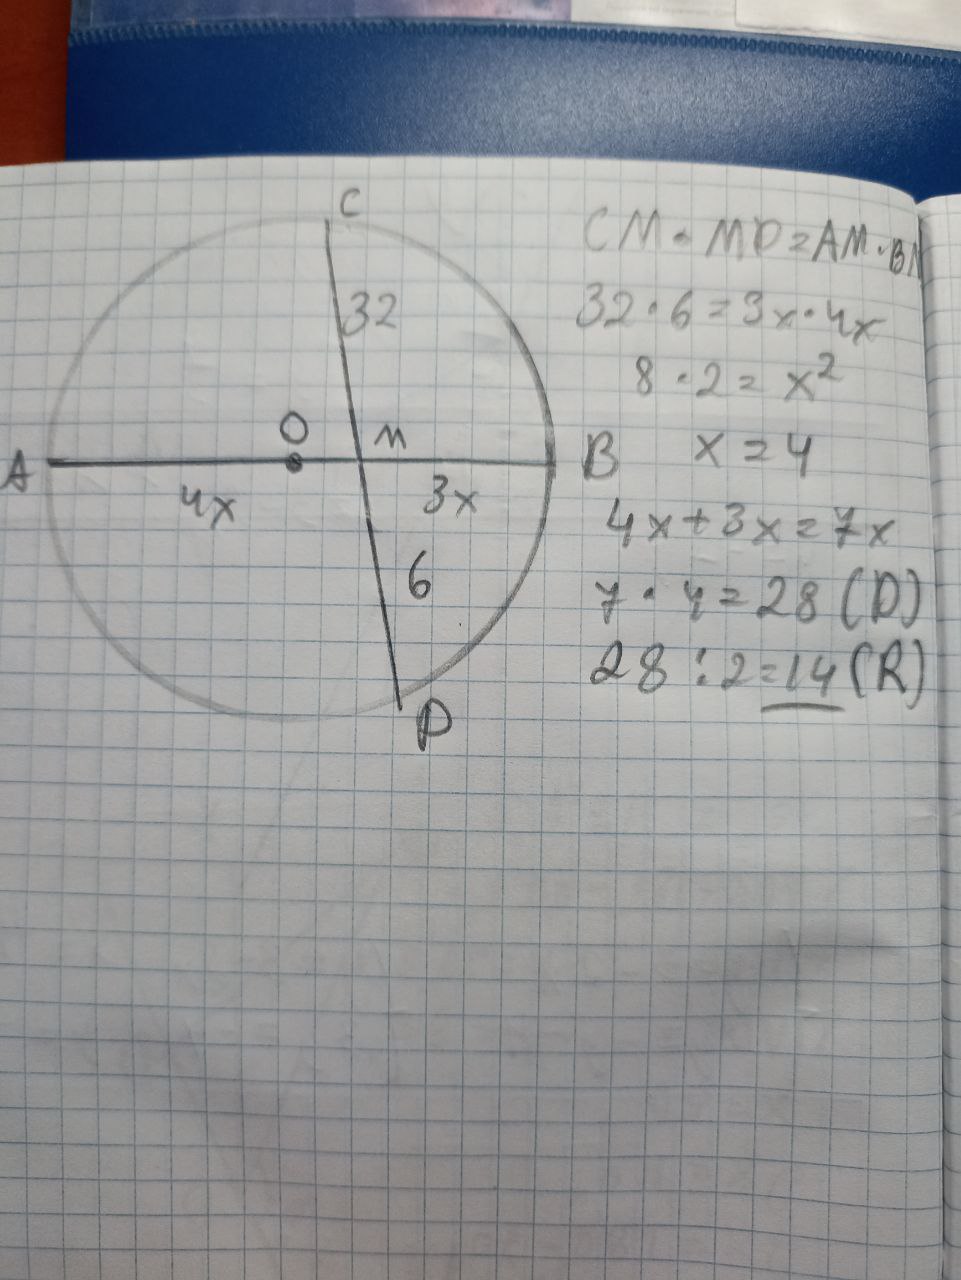 C
32
O
M
A
B
4x
3x
6
D
CM · MD = AM · BM
32 · 6 = 3x · 4x
8 · 2 = x²
x = 4
4x + 3x = 7x
7 · 4 = 28 (D)
28 : 2 = 14 (R)